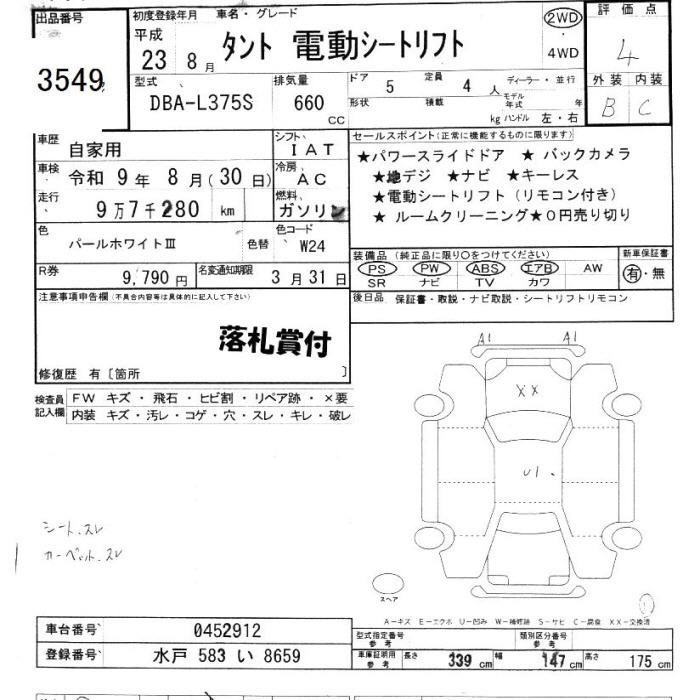 出品番号
3549
初度登録年月 車名・グレード
平成
23 8月
タント 電動シートリフト
2WD
・
4WD
評価点
4
外装 内装
B C
型式
DBA-L375S
排気量
660
CC
ドア 5 定員 4 人
形状 積載 kg
ディーラー・並行
モデル年式 年
ハンドル 左・右
車歴
自家用
シフト
IAT
車検
令和 9年 8月(30日)
冷房
AC
走行
9万7千280 km
燃料
ガソリン
色
パールホワイトⅢ
色替
色コード
W24
R券
9,790円
名変通知期限
3月31日
セールスポイント(正常に機能するものに限ります)
★パワースライドドア ★ バックカメラ
★地デジ ★ナビ ★キーレス
★電動シートリフト(リモコン付き)
★ ルームクリーニング★0円売り切り
装備品(純正品に限り○をつけてください)
PS PW ABS エアB AW
SR ナビ TV カワ
新車保証書
有・無
後日品 保証書・取説・ナビ取説・シートリフトリモコン
注意事項申告欄(不具合内容等は具体的に記入して下さい)
落札賞付
修復歴 有〔箇所 〕
検査員
記入欄
FW キズ・飛石・ヒビ割・リペア跡・×要
内装 キズ・汚レ・コゲ・穴・スレ・キレ・破レ
A1 A1
XX
U1
シート.スレ
カーペット.スレ
スペア
1
A-キズ E-エクボ U-凹み W-補修跡 S-サビ C-腐食 XX-交換済
車台番号
0452912
登録番号
水戸 583 い 8659
型式指定番号
参考
類別区分番号
参考
車庫証明用
参考
長さ 339cm 幅 147cm 高さ 175cm